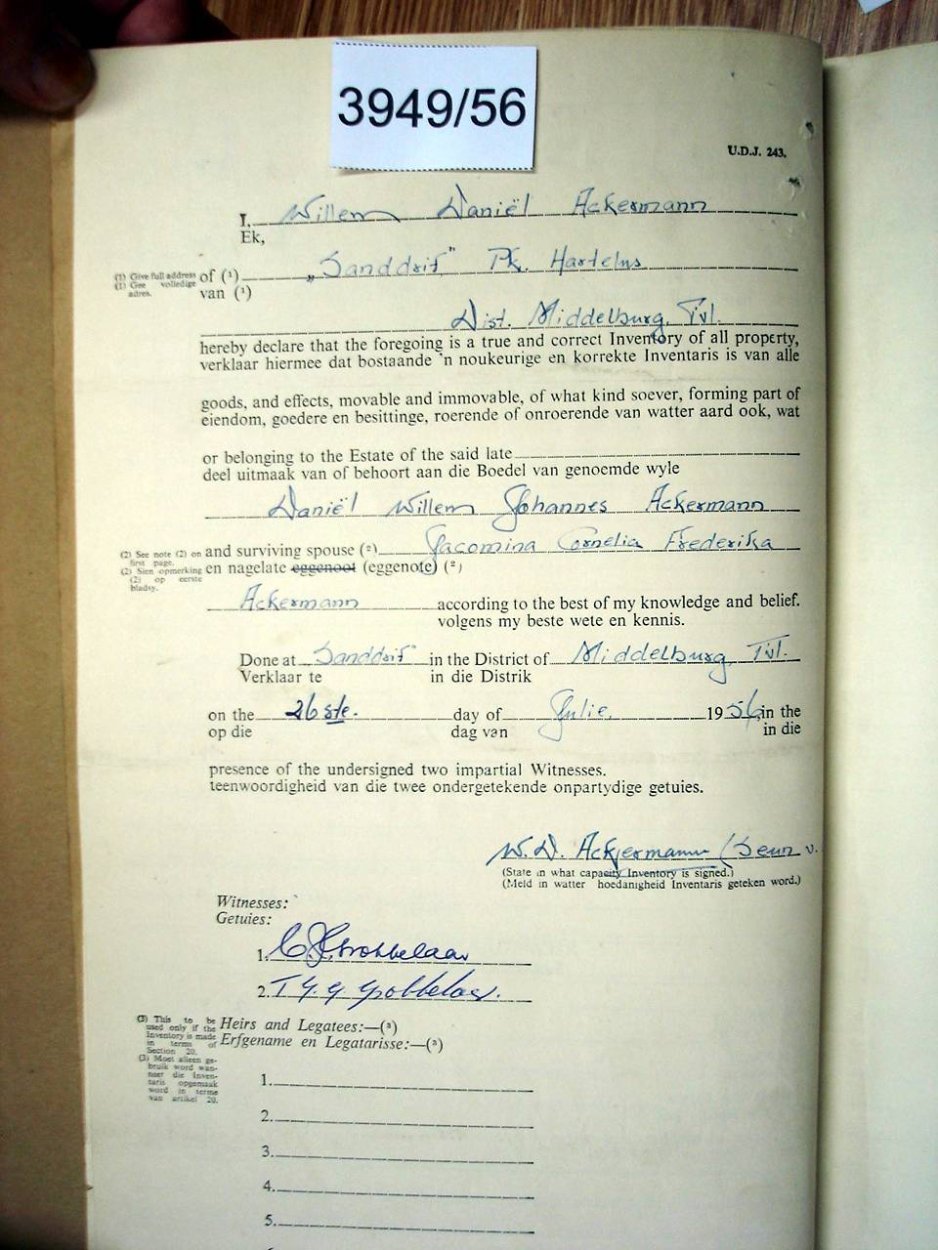 3949/56
U.D.J. 243.
I, Willem Daniël Ackermann
Ek,
(1) Give full address of (1) „Sanddrif" Pk. Hartelus
(1) Gee volledige adres. van (1)
Dist. Middelburg, Tvl.
hereby declare that the foregoing is a true and correct Inventory of all property,
verklaar hiermee dat bostaande 'n noukeurige en korrekte Inventaris is van alle
goods, and effects, movable and immovable, of what kind soever, forming part of
eiendom, goedere en besittinge, roerende of onroerende van watter aard ook, wat
or belonging to the Estate of the said late
deel uitmaak van of behoort aan die Boedel van genoemde wyle
Daniël Willem Johannes Ackermann
(2) See note (2) on first page. and surviving spouse (2) Jacomina Cornelia Frederika
(2) Sien opmerking (2) op eerste bladsy. en nagelate eggenoot (eggenote) (2)
Ackermann according to the best of my knowledge and belief.
volgens my beste wete en kennis.
Done at Sanddrif" in the District of Middelburg, Tvl.
Verklaar te in die Distrik
on the 26ste. day of Julie, 1956, in the
op die dag van in die
presence of the undersigned two impartial Witnesses.
teenwoordigheid van die twee ondergetekende onpartydige getuies.
W. D. Ackermann (Seun v.
(State in what capacity Inventory is signed.)
(Meld in watter hoedanigheid Inventaris geteken word.)
Witnesses:
Getuies:
1. Grobbelaar
2. Grobbelaar.
(3) This to be used only if the Inventory is made in terms of Section 20.
Heirs and Legatees:—(3)
Erfgename en Legatarisse:—(3)
(3) Moet alleen gebruik word wanneer die Inventaris opgemaak word in terme van artikel 20.
1.
2.
3.
4.
5.